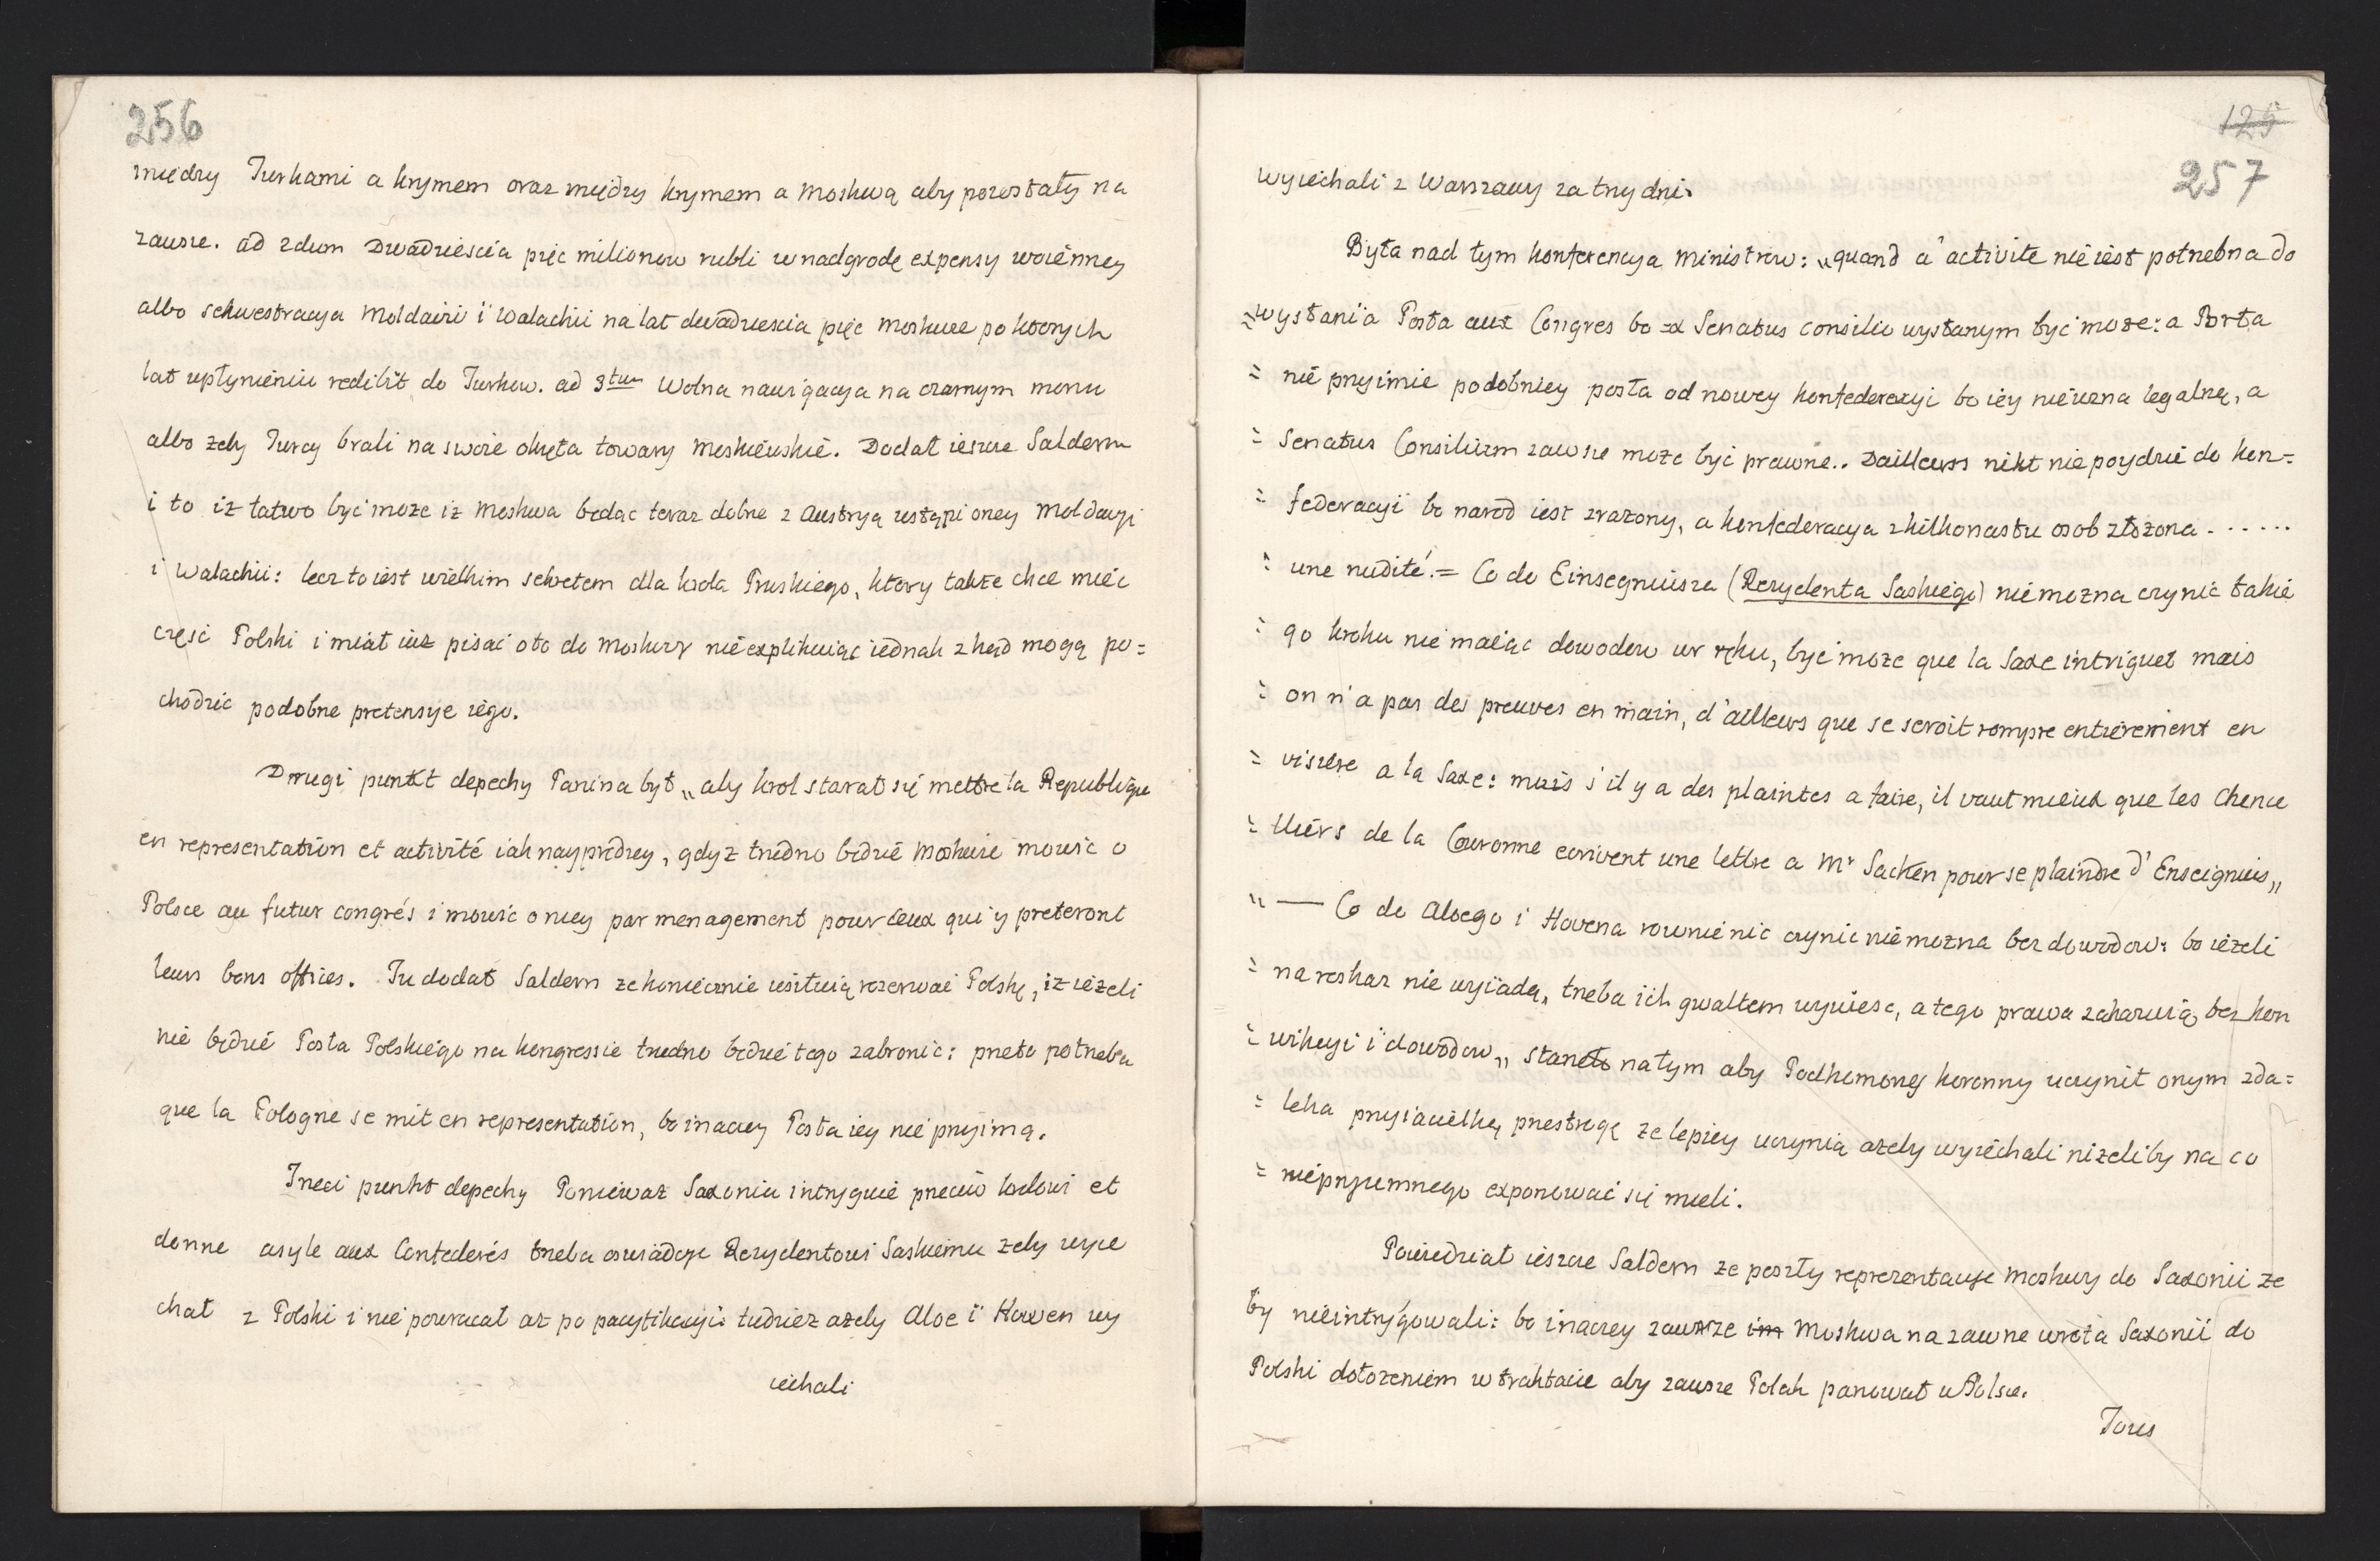 256
między Turkami a krymem oraz między krymem a moskwą aby pozostały na
zawsze. ad 2dum Dwadziescia pięc milionow rubli w nadgrodę expensy woienney
albo sekwestracya Moldawii i Walachii na lat dwadziescia pięc moskwie po ktorych
lat upłynieniu redibit do Turkow. ad 3tium Wolna nawigacya na czarnym morzu
albo zeby Turcy brali na swoie okręta towary moskiewskie. Dodał ieszcze Saldern
i to iz łatwo być moze iz moskwa będac teraz dobrze z Austryą ustąpi oney Moldawyi
i Walachii: lecz to iest wielkim sekretem dla krola Pruskiego, ktory także chce miéc
częsć Polski i miał iuż pisać oto do moskwy nieexplikuiąc iednak zkąd mogą po=
chodzić podobne pretensye iego.
Drugi punkt depechy Panina był „aby krol starał się mettre la Republique
en representation et activité iak nayprędzey, gdyz trudno będzie moskwie mowić o
Polsce au futur congrés i mowić o niey par menagement pour ceux qui y preteront
leurs bons offices. Tu dodał Saldern ze koniecznie usiłuią rozerwać Polskę, iz iezeli
nie będzie Posła Polskiego na kongressie trudno będzie tego zabronić: przeto potrzeba
que la Pologne se mit en representation, bo inaczey Posła iey nie przyimą.
Trzeci punkt depechy Poniewaz Saxonia intryguie przeciw krolowi et
donne asyle aux Confederés trzeba oswiadczyc Rezydentowi Saskiemu zeby wyie
chał z Polski i nie powracał az po pacyfikacyi: tudziez azeby Aloe i Hoven wy
iechali
125
257
wyiechali z Warszawy za trzy dni.
Była nad tym konferencya ministrow: „quand a' activite nie iest potrzebna do
= wysłania Posła aux Congres bo ex Senatus consilio wysłanym być moze: a Porta
= nie przyimie podobniey posła od nowey konfederacyi bo iey nieuzna legalną, a
= Senatus Consilium zawsze moze być prawne.. Dailleurs nikt nie poydzie do kon=
= federacyi bo narod iest zrazony, a konfederacya z kilkonastu osob złożona . . . . . .
= une nudité.= Co do Einsegniusza (Rezydenta Saskiego) niemozna czynić takie
= go kroku nie maiąc dowodow w ręku, być moze que la Saxe intriguet mais
= on n'a pas des preuves en main, d'ailleurs que se seroit rompre entierement en
= visiere a la Saxe: mais s'il y a des plaintes a faire, il vaut mieux que les Chence
= lliers de la Couronne ecrivent une lettre a Mr Sacken pour se plaindre d'Enseignius„
„ — Co do Aloego i Hovena rownie nic czynic niemozna bez dowodow: bo iezeli
= na roskaz nie wyiadą, trzeba ich gwałtem wywiesc, a tego prawa zakazuią bez kon
= wikcyi i dowodow„ staneło na tym aby Podkomorzy koronny uczynił onym zda=
= leka przyiacielką przestrogę ze lepiey uczynią azeby wyiechali nizeliby na co
= nieprzyiemnego exponować się mieli.
Powiedział ieszcze Saldern ze poszły reprezentacye moskwy do Saxonii że
by nieintrygowali: bo inaczey zawsze im moskwa na zawsze wrota Saxonii do
Polski dołozeniem w traktacie aby zawsze Polak panował w Polsce.
Tous